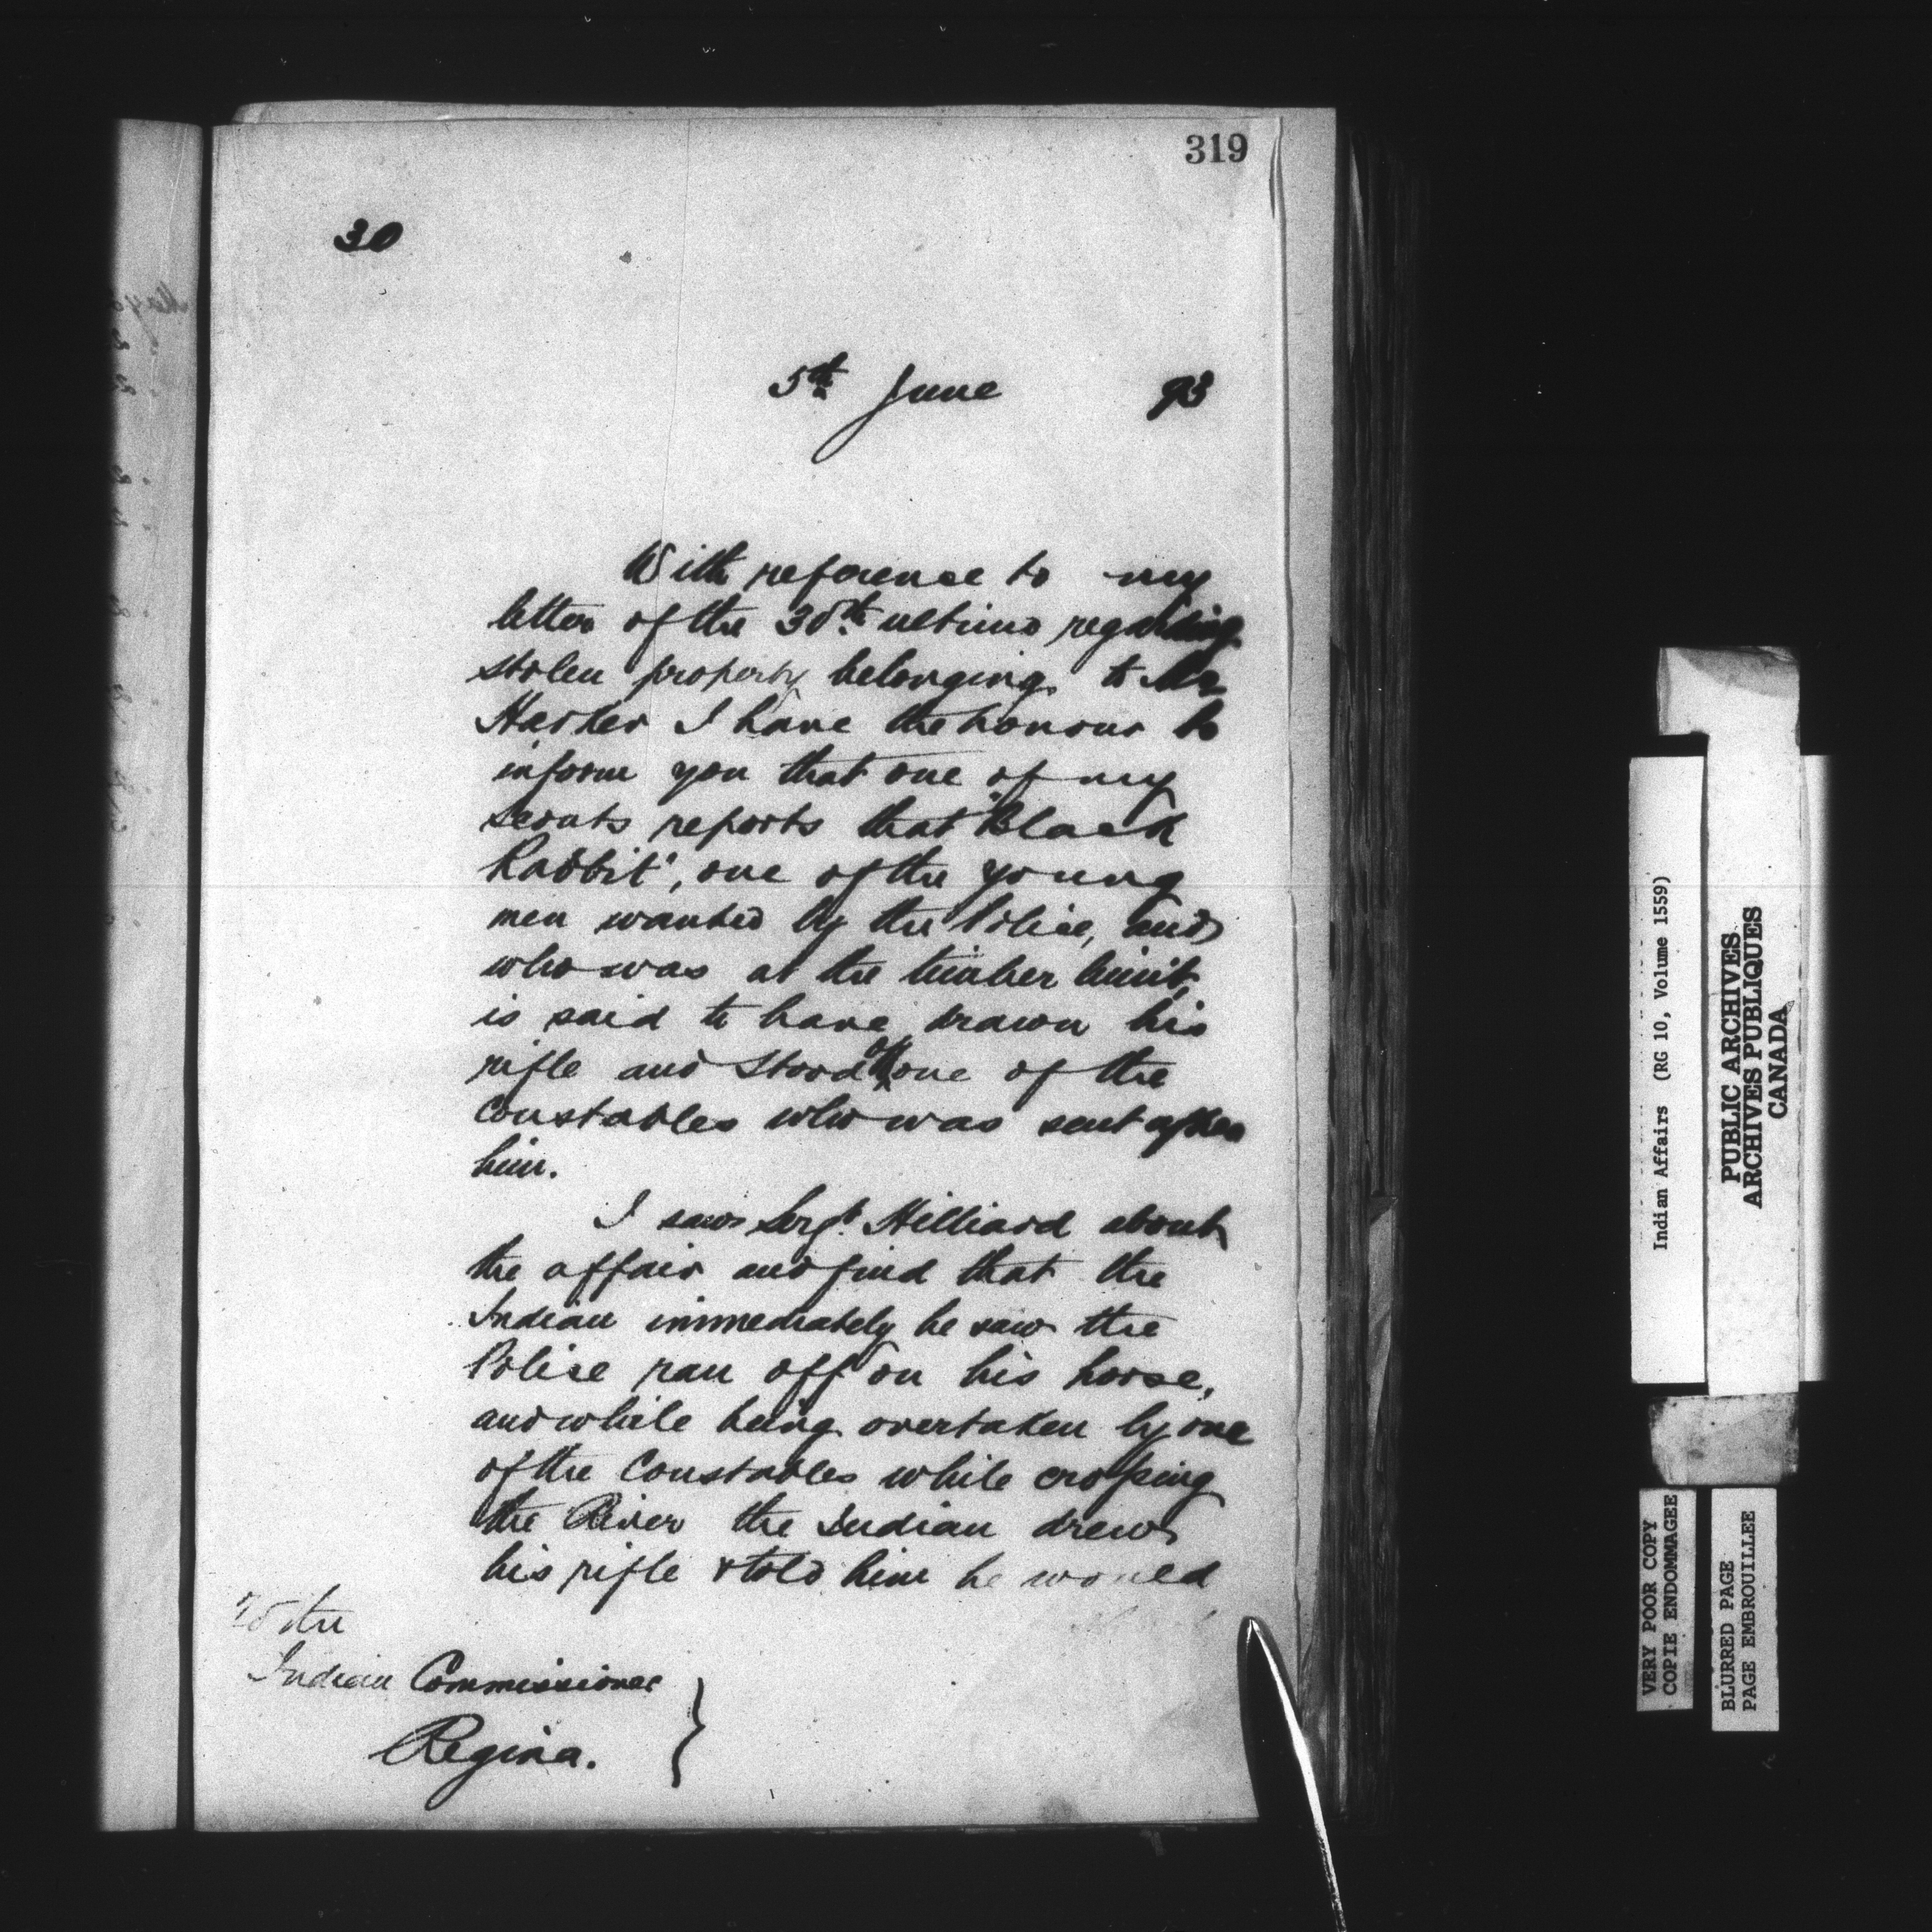 319
30
5th June 93
With reference to my
letter of the 30th ultimo regarding
stolen property belonging to Mr
Harker I have the honour to
inform you that one of my
scouts reports that "Black
Rabbit", one of the young
men wanted by the Police, and
who was at the timber limit,
is said to have drawn his
rifle and stood off one of the
Constables who was sent after
him.
I saw Sergt. Hilliard about
the affair and find that the
Indian immediately he saw the
Police ran off on his horse,
and while being overtaken by one
of the Constables while crossing
the River the Indian drew
his rifle & told him he would
To the
Indian Commissioner
Regina.
Indian Affairs (RG 10, Volume 1559)
PUBLIC ARCHIVES
ARCHIVES PUBLIQUES
CANADA
VERY POOR COPY
COPIE ENDOMMAGEE
BLURRED PAGE
PAGE EMBROUILLEE